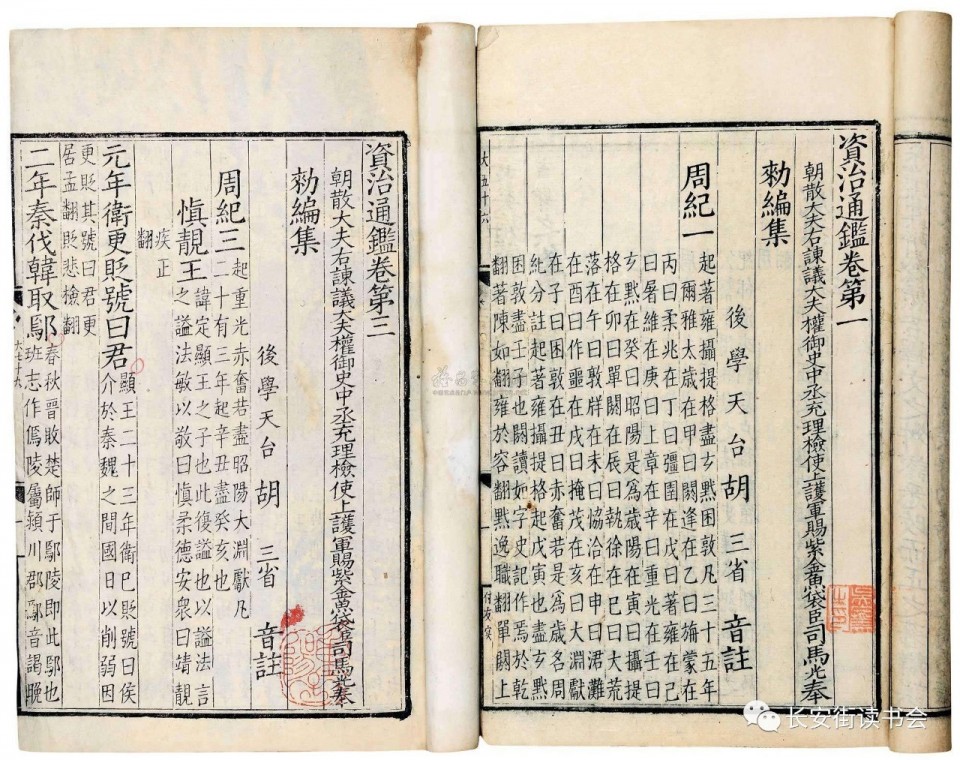 資治通鑑卷第一
朝散大夫右諫議大夫權御史中丞充理檢使上護軍賜紫金魚袋臣司馬光奉
勑編集
後學天台胡三省音註
周紀一
起著雍攝提格盡玄黓困敦凡三十五年
爾雅太歲在甲曰閼逢在乙曰旃蒙在
丙曰柔兆在丁曰彊圉在戊曰著雍在己
曰屠維在庚曰上章在辛曰重光在壬曰
玄黓在癸曰昭陽是爲歲陽在寅曰攝提
格在卯曰單閼在辰曰執徐在巳曰大荒
落在午曰敦牂在未曰協洽在申曰涒灘
在酉曰作噩在戌曰掩茂在亥曰大淵獻
在子曰困敦在丑曰赤奮若是爲歲名周
紀分註起著雍攝提格起戊寅也盡玄黓
困敦盡壬子也閼讀如字史記作焉於乾
翻著陳如翻雍於容翻黓逸職翻單閼上
資治通鑑卷第三
朝散大夫右諫議大夫權御史中丞充理檢使上護軍賜紫金魚袋臣司馬光奉
勑編集
後學天台胡三省音註
周紀三
起重光赤奮若盡昭陽大淵獻凡
二十有三年起辛丑盡癸亥也
愼靚王
諱定顯王之子也此復謚也以謚法言
之謚法敏以敬曰愼柔德安衆曰靖靚
疾正
翻
元年衛更貶號曰君
顯王二十三年衛已貶號曰侯
介於秦魏之間國日以削弱因
更貶其號曰君更
居孟翻貶悲檢翻
二年秦伐韓取鄢
春秋晉敗楚師于鄢陵即此鄢也
班志作傿陵屬潁川郡鄢音謁晚
长安街读书会